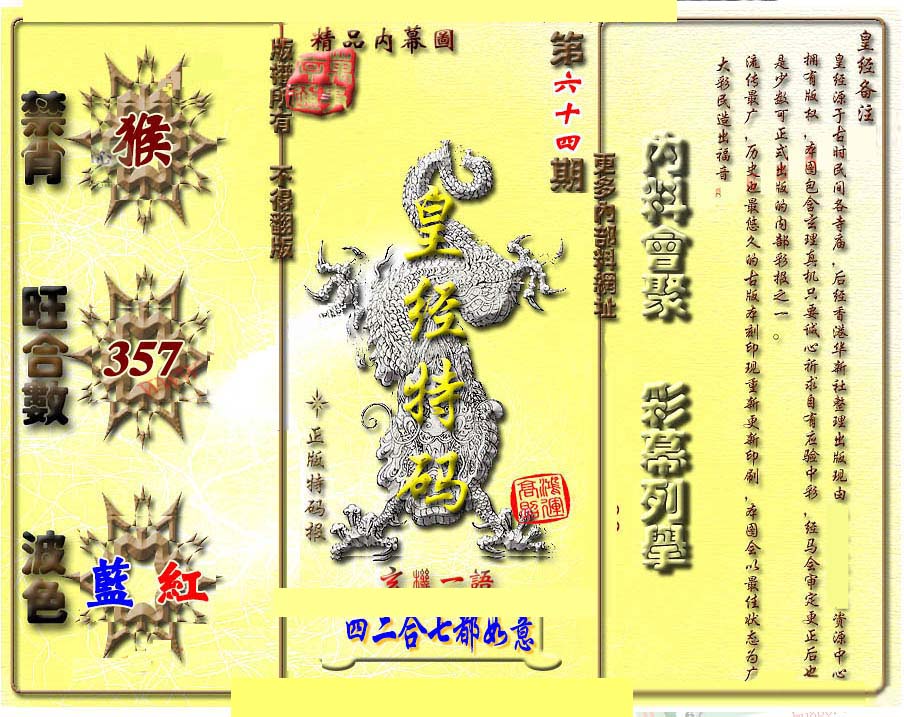 精品内幕圖
版權所有 不得翻版
第六十四期
更多內部料網址
禁肖
猴
旺合數
357
波色
藍 紅
皇经特码
正版特码报
鴻運高照
玄機一語
四二合七都如意
內料會聚
彩幕列舉
皇经备注
皇经源于古时民间各寺庙,后经香港华新社整理出版现由 资源中心
拥有版权,本图包含玄理真机只要诚心祈求自有应验中彩,经马会审定更正后也
是少数可正式出版的内部彩报之一。
流传最广,历史也最悠久的古版本刻印现重新更新印刷,本图会以最佳状态为广
大彩民造出福音